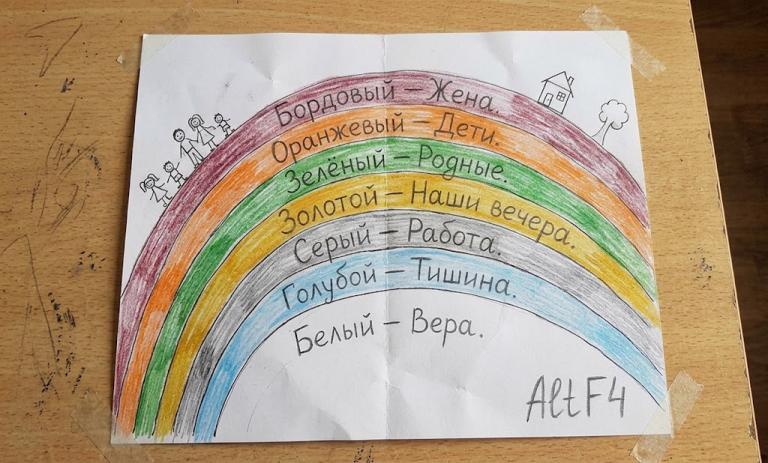 Бордовый – Жена.
Оранжевый – Дети.
Зелёный – Родные.
Золотой – Наши вечера.
Серый – Работа.
Голубой – Тишина.
Белый – Вера.
AltF4